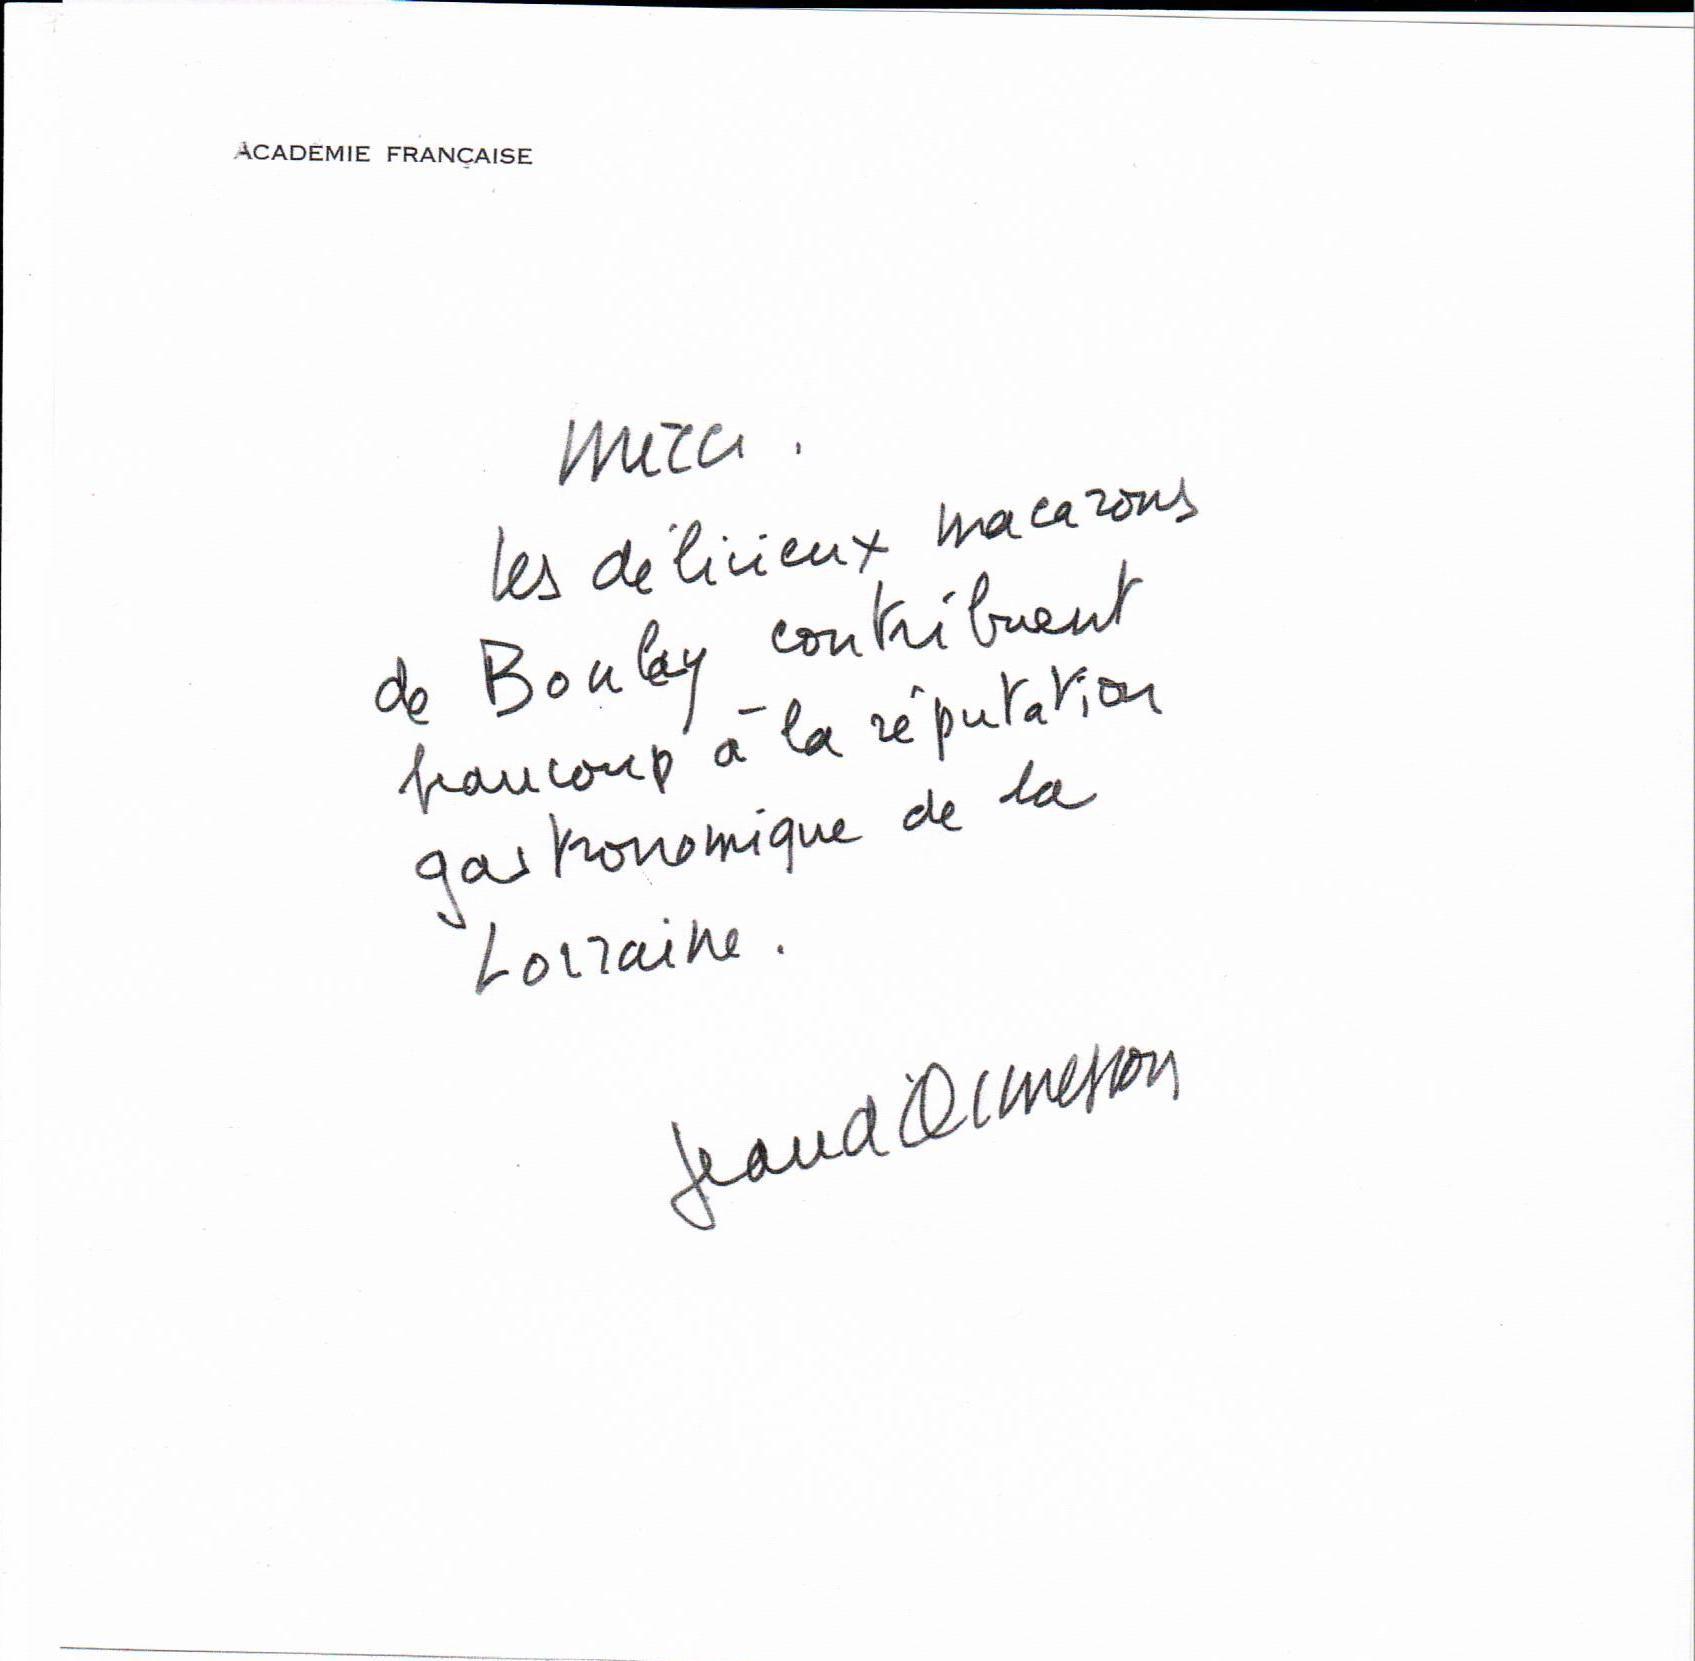 ACADÉMIE FRANÇAISE
Merci.
Les délicieux macarons
de Boulay contribuent
beaucoup à la réputation
gastronomique de la
Lorraine.
Jean d'Ormesson